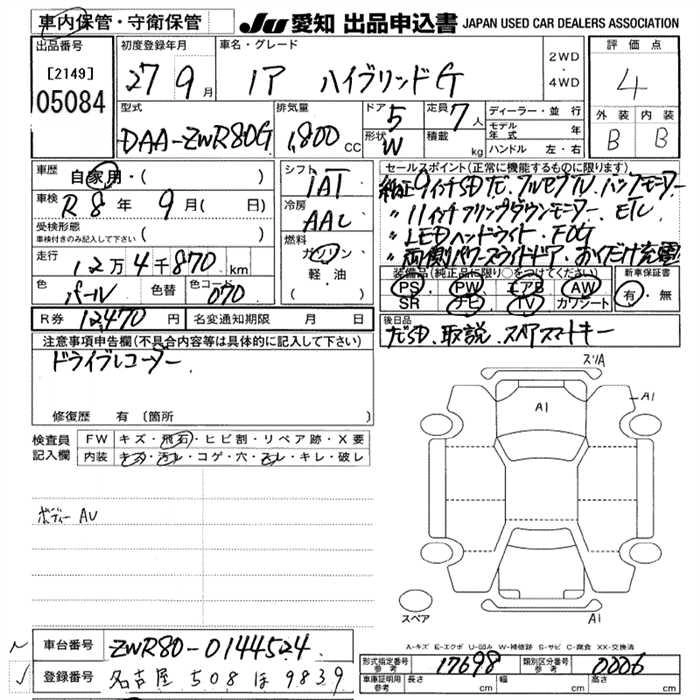 車内保管・守衛保管
JU 愛知 出品申込書 JAPAN USED CAR DEALERS ASSOCIATION
出品番号
[2149]
05084
初度登録年月
27 9月
車名・グレード
ノア ハイブリッドG
2WD
・
4WD
評価点
4
外装 内装
B B
型式
DAA-ZWR80G
排気量
1,800 CC
ドア 5
定員 7人
形状 W
積載 kg
ディーラー・並行
モデル年式 年
ハンドル 左・右
車歴
自家用・( )
車検
R8年 9月( 日)
受検形態
車検付きのみ記入して下さい ( )
走行
12万4千870km
色 パール 色替 色コード 070
シフト
IAT
冷房
AAC
燃料
ガソリン
軽・油
( )
セールスポイント(正常に機能するものに限ります)
純正9インチSDナビ、フルセグTV、バックモニター
〃 11インチフリップダウンモニター、ETC
〃 LEDヘッドライト、FOG
〃 両側パワースライドドア、おくだけ充電
装備品(純正品に限り○をつけてください)
PS、PW、エアB、AW
SR ナビ TV カワシート
新車保証書
有・無
R券 12,470円 名変通知期限 月 日
後日品
ナビSD、取説、スペアスマートキー
注意事項申告欄(不具合内容等は具体的に記入して下さい)
ドライブレコーダー
修復歴 有〔箇所
検査員記入欄
FW キズ・飛石・ヒビ割・リペア跡・X要
内装 キズ・汚レ・コゲ・穴・スレ・キレ・破レ
ボディー AU
スリA
A1
A1
A1
スペア
A-キズ E-エクボ U-凹み W-補修跡 S-サビ C-腐食 XX-交換済
車台番号 ZWR80-0144524
登録番号 名古屋 508 ほ 9839
形式指定番号 参考 17698
類別区分番号 参考 0006
車庫証明用寸法 参考 長さ cm 幅 cm 高さ cm